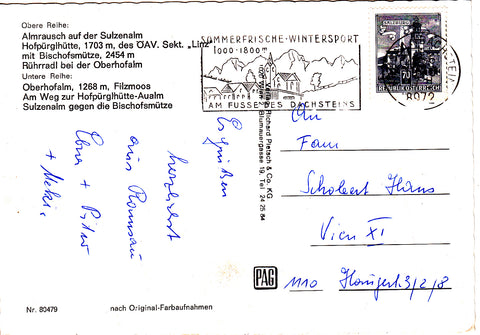 Obere Reihe:
Almrausch auf der Sulzenalm
Hofpürglhütte, 1703 m, des ÖAV. Sekt. „Linz"
mit Bischofsmütze, 2454 m
Rührradl bei der Oberhofalm
Untere Reihe:
Oberhofalm, 1268 m, Filzmoos
Am Weg zur Hofpürglhütte-Aualm
Sulzenalm gegen die Bischofsmütze
SOMMERFRISCHE-WINTERSPORT
1000-1800m
AM FUSSE DES DACHSTEINS
8972
REPUBLIK ÖSTERREICH
70
Richard Pietsch & Co. KG
Es grüßen
herzlichst
aus Ramsau
An
Fam
Schobert Hans
Wien XI
1110
3/2/8
PAG
Nr. 80479
nach Original-Farbaufnahmen